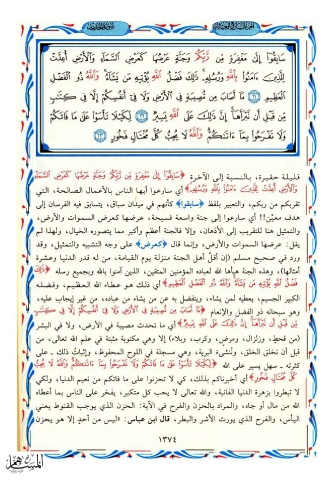 سَابِقُوٓاْ إِلَىٰ مَغْفِرَةٍ مِّن رَّبِّكُمْ وَجَنَّةٍ عَرْضُهَا كَعَرْضِ ٱلسَّمَآءِ وَٱلْأَرْضِ أُعِدَّتْ
لِلَّذِينَ ءَامَنُواْ بِٱللَّهِ وَرُسُلِهِۦ ذَٰلِكَ فَضْلُ ٱللَّهِ يُؤْتِيهِ مَن يَشَآءُ وَٱللَّهُ ذُو ٱلْفَضْلِ
ٱلْعَظِيمِ مَآ أَصَابَ مِن مُّصِيبَةٍ فِي ٱلْأَرْضِ وَلَا فِيٓ أَنفُسِكُمْ إِلَّا فِي كِتَٰبٍ
مِّن قَبْلِ أَن نَّبْرَأَهَآ إِنَّ ذَٰلِكَ عَلَى ٱللَّهِ يَسِيرٌ لِّكَيْلَا تَأْسَوْاْ عَلَىٰ مَا فَاتَكُمْ
وَلَا تَفْرَحُواْ بِمَآ ءَاتَىٰكُمْ وَٱللَّهُ لَا يُحِبُّ كُلَّ مُخْتَالٍ فَخُورٍ
قليلة حقيرة، بالنسبة إلى الآخرة ﴿سَابِقُوٓاْ إِلَىٰ مَغْفِرَةٍ مِّن رَّبِّكُمْ وَجَنَّةٍ عَرْضُهَا كَعَرْضِ ٱلسَّمَآءِ
وَٱلْأَرْضِ أُعِدَّتْ لِلَّذِينَ ءَامَنُواْ بِٱللَّهِ وَرُسُلِهِۦ﴾ أي سارعوا أيها الناس بالأعمال الصالحة، التي
تقربكم من ربكم، والتعبير بلفظ ﴿سابقوا﴾ كأنهم في ميدان سباق، يتسابق فيه الفرسان إلى
هدف معيَّن!! أي سارعوا إلى جنة واسعة فسيحة، عرضها كعرض السموات والأرض،
والتمثيل هنا للتقريب إلى الأذهان، وإلا فالجنة أعظم وأكبر مما يتصوره الخيال، ولهذا لم
يقل: عرضها السموات والأرض، وإنما قال ﴿كعرض﴾ على وجه التشبيه والتمثيل، وقد
ورد في صحيح مسلم (إن أقلَّ أهل الجنة منزلة يوم القيامة، من له قدر الدنيا وعشرة
أمثالها)، وهذه الجنة هيأها الله لعباده المؤمنين المتقين، الذين آمنوا بالله وبجميع رسله ﴿ذَٰلِكَ
فَضْلُ ٱللَّهِ يُؤْتِيهِ مَن يَشَآءُ وَٱللَّهُ ذُو ٱلْفَضْلِ ٱلْعَظِيمِ﴾ أي ذلك هو عطاء الله العظيم، وفضله
الكبير الجسيم، يعطيه لمن يشاء، ويتفضل به عن من يشاء من عباده، من غير إيجاب عليه،
وهو سبحانه ذو الفضل والإنعام ﴿مَآ أَصَابَ مِن مُّصِيبَةٍ فِي ٱلْأَرْضِ وَلَا فِيٓ أَنفُسِكُمْ إِلَّا فِي كِتَٰبٍ
مِّن قَبْلِ أَن نَّبْرَأَهَآ إِنَّ ذَٰلِكَ عَلَى ٱللَّهِ يَسِيرٌ﴾ أي ما تحدث مصيبة في الأرض، ولا في البشر
(من قحطٍ، وزلزال، ومرضٍ، وكربٍ، وبلاء) إلا وهي مكتوبة مثبتة في علم الله تعالى، من
قبل أن نخلق الخلق، وننشىء البرية، وهي مسجلة في اللوح المحفوظ، وإثباتُ ذلك ـ على
كثرته ـ سهل يسير على الله ﴿لِّكَيْلَا تَأْسَوْاْ عَلَىٰ مَا فَاتَكُمْ وَلَا تَفْرَحُواْ بِمَآ ءَاتَىٰكُمْ وَٱللَّهُ لَا يُحِبُّ
كُلَّ مُخْتَالٍ فَخُورٍ﴾ أي أخبرناكم بذلك، كي لا تحزنوا على ما فاتكم من نعيم الدنيا، ولكي
لا تبطروا بزهرة الدنيا الفانية، والله تعالى لا يحب كل متكبر، يفخر على الناس بما أعطاه
الله من مال أو جاه، والمراد بالحزن والفرح في الآية: الحزن الذي يوجب القنوط يعني
اليأس، والفرح الذي يورث الأشر والبطر، قال ابن عباس: «ليس من أحدٍ إلا هو يحزن
١٣٧٤